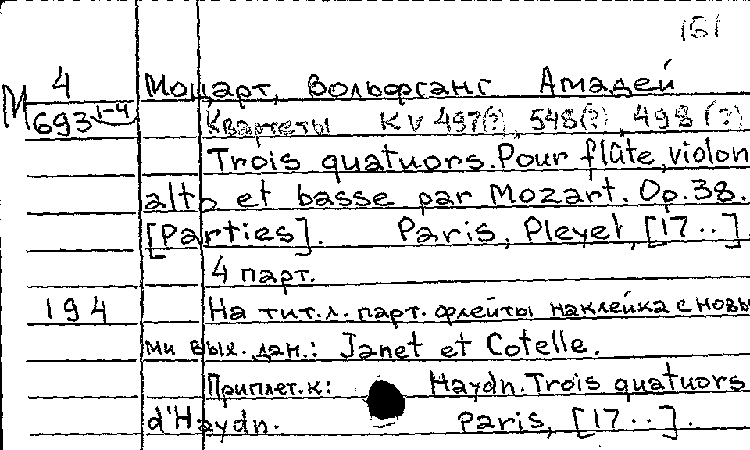 161
М 4 Моцарт, Вольфганг Амадей
693 1-4 Квартеты KV 497(?), 548(?), 498(?)
Trois quatuors. Pour flûte, violon
alto et basse par Mozart. Op. 38.
[Parties]. Paris, Pleyel, [17..].
4 парт.
194 На тит. л. парт. флейты наклейка с новы
ми вых. дан.: Janet et Cotelle.
Приплет. к: Haydn. Trois quatuors
d'Haydn. Paris, [17..].